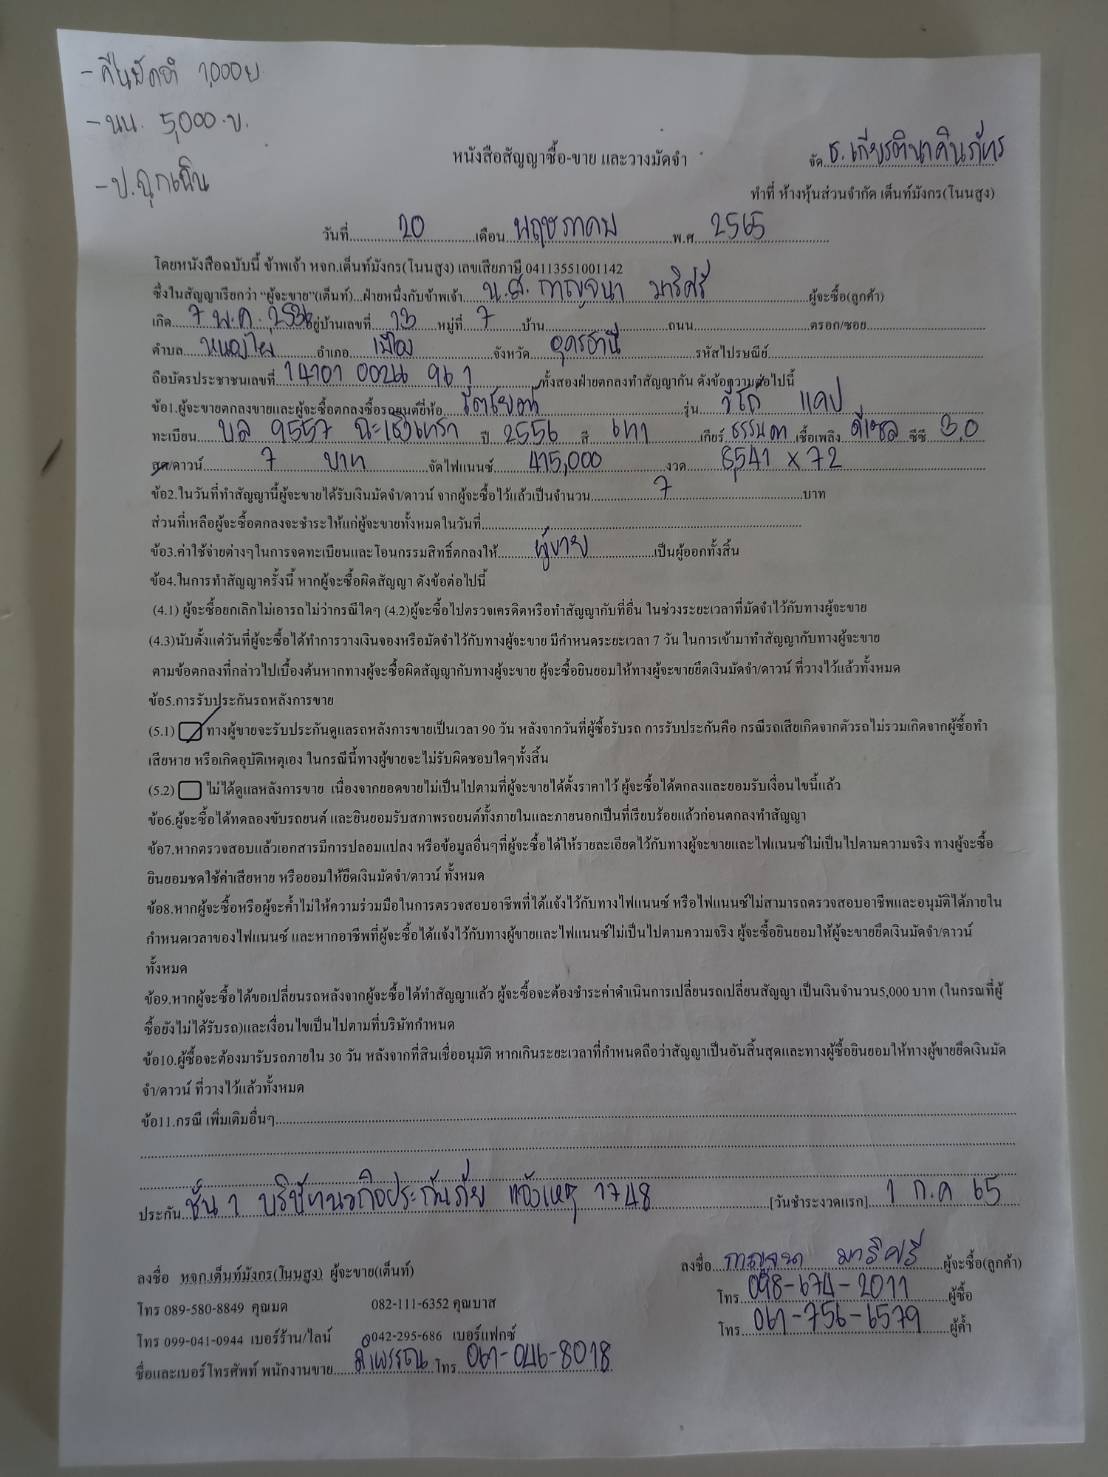 - คืนมัดจำ 1,000 บ
- นน. 5,000.บ.
- ป.ฉุกเฉิน
หนังสือสัญญาซื้อ-ขาย และวางมัดจำ
จัด ธ.เกียรตินาคินภัทร
ทำที่ ห้างหุ้นส่วนจำกัด เต็นท์มังกร(โนนสูง)
วันที่ 20 เดือน พฤษภาคม พ.ศ. 2565
โดยหนังสือฉบับนี้ ข้าพเจ้า หจก.เต็นท์มังกร(โนนสูง) เลขเสียภาษี 04113551001142
ซึ่งในสัญญาเรียกว่า "ผู้จะขาย"(เต็นท์)...ฝ่ายหนึ่งกับข้าพเจ้า น.ส. กาญจนา มาริศรี ผู้จะซื้อ(ลูกค้า)
เกิด 7 พ.ค. 2536 อยู่บ้านเลขที่ 13 หมู่ที่ 7 บ้าน ถนน ตรอก/ซอย
ตำบล หนองไผ่ อำเภอ เมือง จังหวัด อุดรธานี รหัสไปรษณีย์
ถือบัตรประชาชนเลขที่ ทั้งสองฝ่ายตกลงทำสัญญากัน ดังข้อความต่อไปนี้
ข้อ1.ผู้จะขายตกลงขายและผู้จะซื้อตกลงซื้อรถยนต์ยี่ห้อ โตโยต้า รุ่น วีโก้ แคป
ทะเบียน บล 9557 ฉะเชิงเทรา ปี 2556 สี เทา เกียร์ ธรรมดา เชื้อเพลิง ดีเซล ซีซี 3.0
สด/ดาวน์ 7 บาท จัดไฟแนนซ์ 415,000 งวด 8,541 x 72
ข้อ2.ในวันที่ทำสัญญานี้ผู้จะขายได้รับเงินมัดจำ/ดาวน์ จากผู้จะซื้อไว้แล้วเป็นจำนวน 7 บาท
ส่วนที่เหลือผู้จะซื้อตกลงจะชำระให้แก่ผู้จะขายทั้งหมดในวันที่
ข้อ3.ค่าใช้จ่ายต่างๆในการจดทะเบียนและโอนกรรมสิทธิ์ตกลงให้ ผู้ขาย เป็นผู้ออกทั้งสิ้น
ข้อ4.ในการทำสัญญาครั้งนี้ หากผู้จะซื้อผิดสัญญา ดังข้อต่อไปนี้
(4.1) ผู้จะซื้อยกเลิกไม่เอารถไม่ว่ากรณีใดๆ (4.2)ผู้จะซื้อไปตรวจเครดิตหรือทำสัญญากับที่อื่น ในช่วงระยะเวลาที่มัดจำไว้กับทางผู้จะขาย
(4.3)นับตั้งแต่วันที่ผู้จะซื้อได้ทำการวางเงินจองหรือมัดจำไว้กับทางผู้จะขาย มีกำหนดระยะเวลา 7 วัน ในการเข้ามาทำสัญญากับทางผู้จะขาย
ตามข้อตกลงที่กล่าวไปเบื้องต้นหากทางผู้จะซื้อผิดสัญญากับทางผู้จะขาย ผู้จะซื้อยินยอมให้ทางผู้จะขายยึดเงินมัดจำ/ดาวน์ ที่วางไว้แล้วทั้งหมด
ข้อ5.การรับประกันรถหลังการขาย
(5.1) ทางผู้ขายจะรับประกันดูแลรถหลังการขายเป็นเวลา 90 วัน หลังจากวันที่ผู้ซื้อรับรถ การรับประกันคือ กรณีรถเสียเกิดจากตัวรถไม่รวมเกิดจากผู้ซื้อทำ
เสียหาย หรือเกิดอุบัติเหตุเอง ในกรณีนี้ทางผู้ขายจะไม่รับผิดชอบใดๆทั้งสิ้น
(5.2) ไม่ได้ดูแลหลังการขาย เนื่องจากยอดขายไม่เป็นไปตามที่ผู้จะขายได้ตั้งราคาไว้ ผู้จะซื้อได้ตกลงและยอมรับเงื่อนไขนี้แล้ว
ข้อ6.ผู้จะซื้อได้ทดลองขับรถยนต์ และยินยอมรับสภาพรถยนต์ทั้งภายในและภายนอกเป็นที่เรียบร้อยแล้วก่อนตกลงทำสัญญา
ข้อ7.หากตรวจสอบแล้วเอกสารมีการปลอมแปลง หรือข้อมูลอื่นๆที่ผู้จะซื้อได้ให้รายละเอียดไว้กับทางผู้จะขายและไฟแนนซ์ไม่เป็นไปตามความจริง ทางผู้จะซื้อ
ยินยอมชดใช้ค่าเสียหาย หรือยอมให้ยึดเงินมัดจำ/ดาวน์ ทั้งหมด
ข้อ8.หากผู้จะซื้อหรือผู้จะค้ำไม่ให้ความร่วมมือในการตรวจสอบอาชีพที่ได้แจ้งไว้กับทางไฟแนนซ์ หรือไฟแนนซ์ไม่สามารถตรวจสอบอาชีพและอนุมัติได้ภายใน
กำหนดเวลาของไฟแนนซ์ และหากอาชีพที่ผู้จะซื้อได้แจ้งไว้กับทางผู้ขายและไฟแนนซ์ไม่เป็นไปตามความจริง ผู้จะซื้อยินยอมให้ผู้จะขายยึดเงินมัดจำ/ดาวน์
ทั้งหมด
ข้อ9.หากผู้จะซื้อได้ขอเปลี่ยนรถหลังจากผู้จะซื้อได้ทำสัญญาแล้ว ผู้จะซื้อจะต้องชำระค่าดำเนินการเปลี่ยนรถเปลี่ยนสัญญา เป็นเงินจำนวน5,000 บาท (ในกรณที่ผู้
ซื้อยังไม่ได้รับรถ)และเงื่อนไขเป็นไปตามที่บริษัทกำหนด
ข้อ10.ผู้ซื้อจะต้องมารับรถภายใน 30 วัน หลังจากที่สินเชื่ออนุมัติ หากเกินระยะเวลาที่กำหนดถือว่าสัญญาเป็นอันสิ้นสุดและทางผู้ซื้อยินยอมให้ทางผู้ขายยึดเงินมัด
จำ/ดาวน์ ที่วางไว้แล้วทั้งหมด
ข้อ11.กรณี เพิ่มเติมอื่นๆ
ประกัน ชั้น 1 บริษัทนวกิจประกันภัย แจ้งเหตุ 1748 [วันชำระงวดแรก] 1 ก.ค 65
ลงชื่อ หจก.เต็นท์มังกร(โนนสูง) ผู้จะขาย(เต็นท์)
ลงชื่อ กาญจนา มาริศรี ผู้จะซื้อ(ลูกค้า)
โทร 089-580-8849 คุณมด 082-111-6352 คุณบาส
โทร 098-674-2011 ผู้ซื้อ
โทร 099-041-0944 เบอร์ร้าน/ไลน์ 042-295-686 เบอร์แฟกซ์
โทร 061-756-6579 ผู้ค้ำ
ชื่อและเบอร์โทรศัพท์ พนักงานขาย ลำพรรณ โทร 061-046-8018